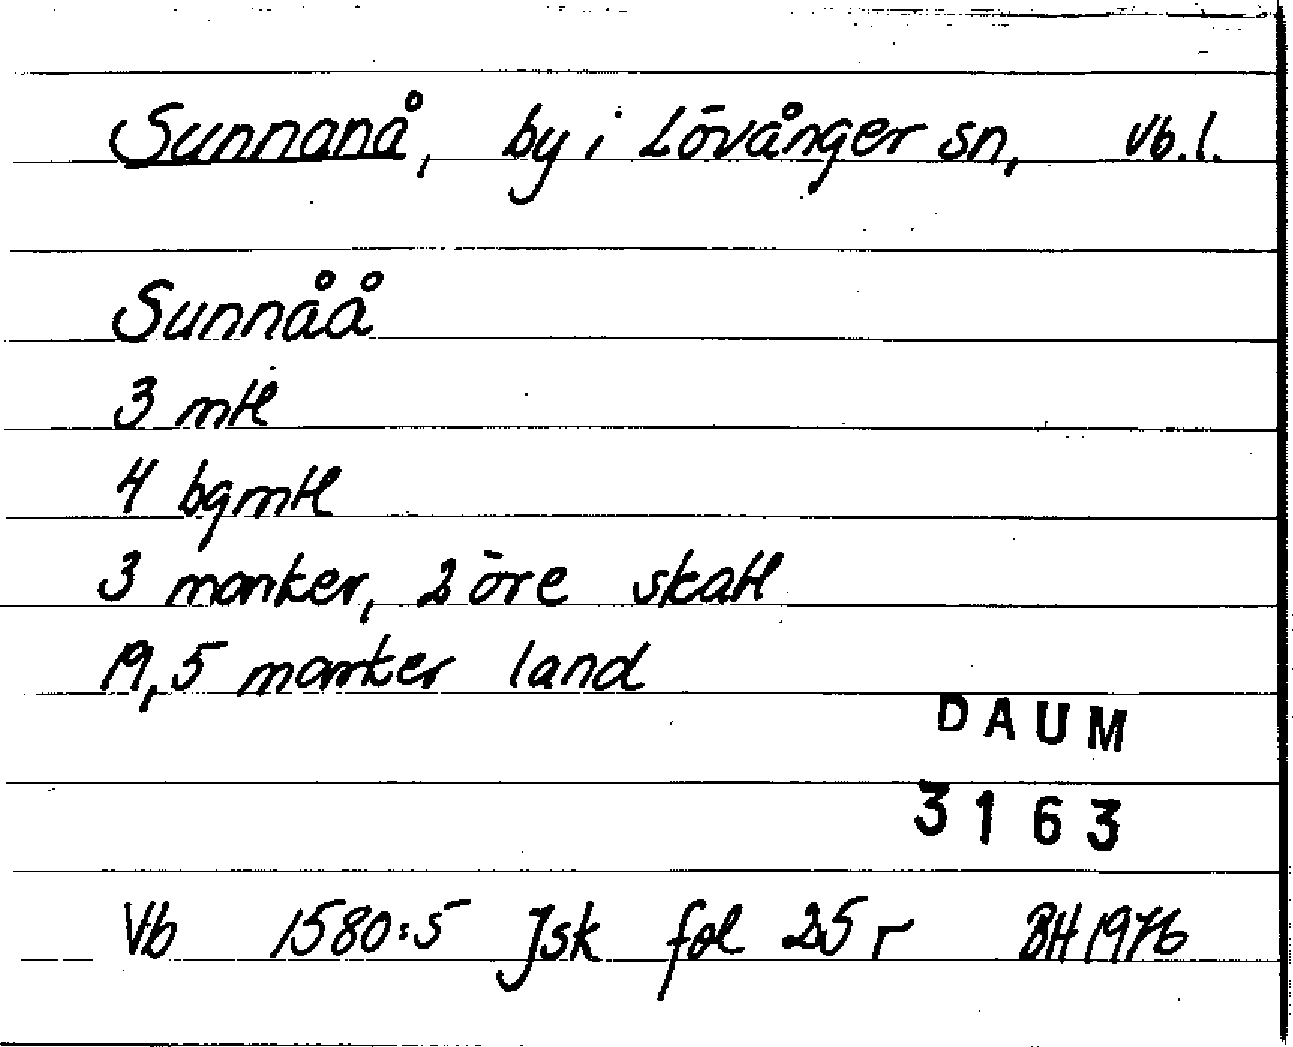 Sunnanå, by i Lövånger sn, Vb.l.
Sunnåå
3 mtl
4 bgmtl
3 marker, 2 öre skatt
19,5 marker land
DAUM
3163
Vb 1580:5 Jsk fol 25 r BH 1976